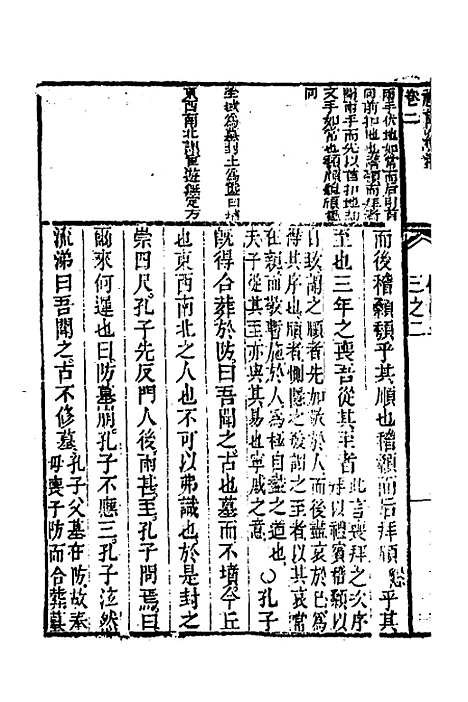 卷二
三之二
兩手伏地如常而后引首
向前扣地也稽顙而后拜者
開兩手而先以首扣地却
交手如常也頓顙
同
坐域為墓封土為壟曰墳
東西南北謂宦遊無定方
而後稽顙顙乎其順也稽顙而后拜頎乎其
至也三年之喪吾從其至者此言喪拜之次序
拜以禮賓稽顙以
自致謂之順者先加敬於人而後盡哀於已為
得其序也頎者惻隱之發謂之至者以其哀常
在親而敬暫施於人為極自盡之道也
夫子從其至亦與其易也寧戚之意○孔子
旣得合葬於防曰吾聞之古也墓而不墳今丘
也東西南北之人也不可以弗識也於是封之
崇四尺孔子先反門人後雨甚至孔子問焉曰
爾來何遲也曰防墓崩孔子不應三孔子泫然
流涕曰吾聞之古不修墓孔子父墓在防故奉
母喪子防而合葬墓